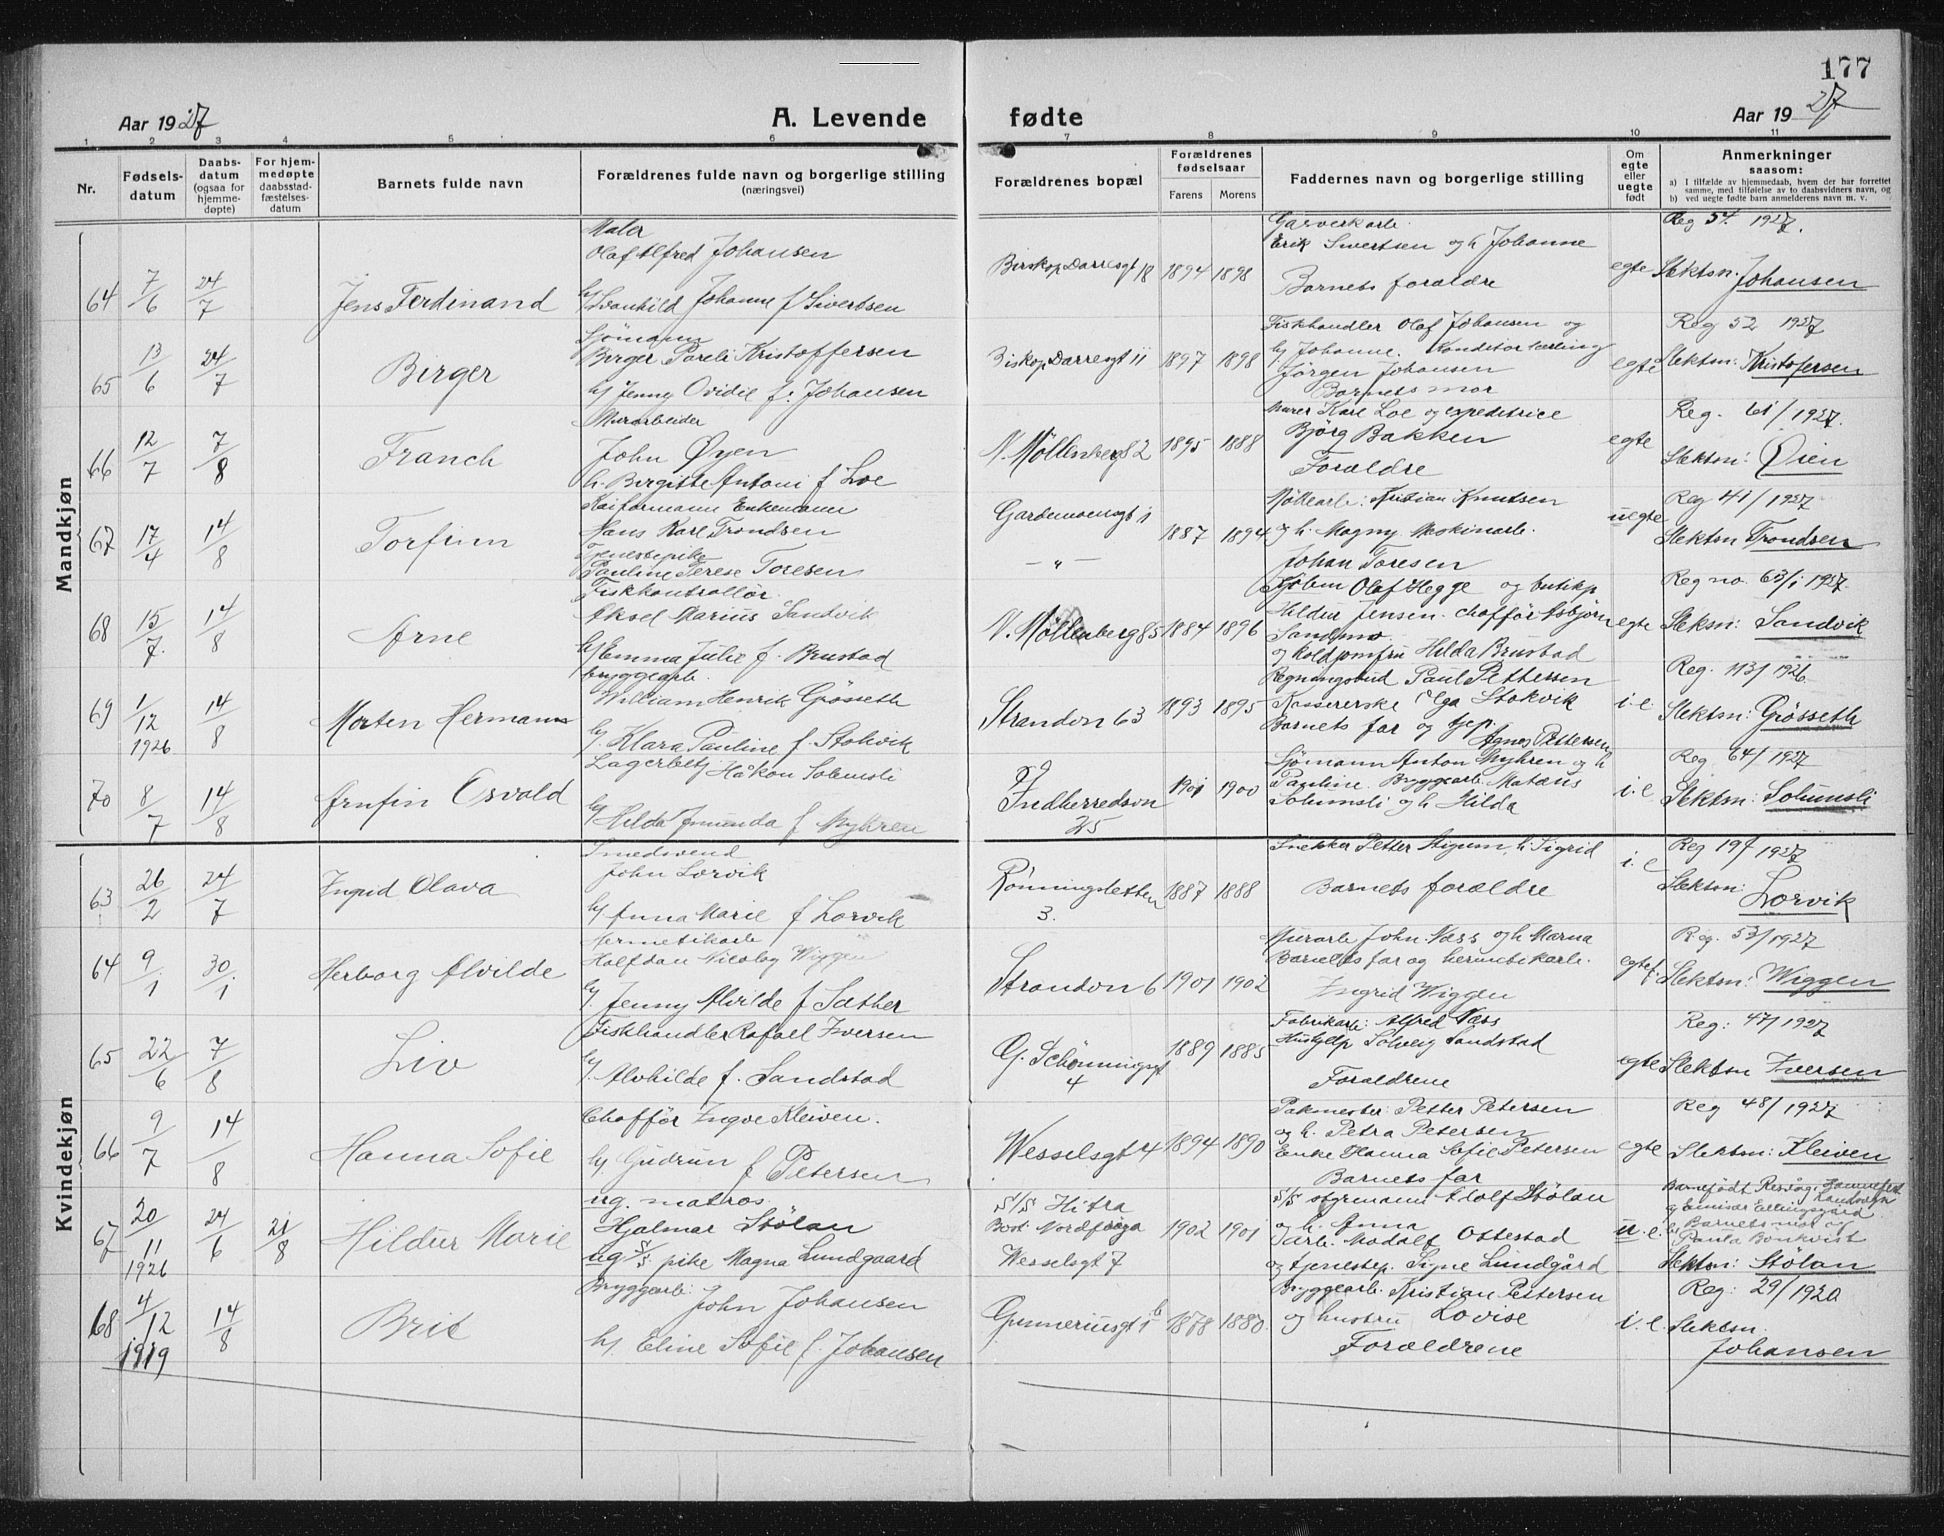 177
Aar 1927
A. Levende fødte
Aar 1927
1 2 3 4 5 6 7 8 9 10 11
Nr.
Fødsels-
datum
Daabs-
datum
(ogsaa for
hjemme-
døpte)
For hjem-
medøpte
daabsstad-
fæstelses-
datum
Barnets fulde navn
Forældrenes fulde navn og borgerlige stilling
(næringsvei)
Forældrenes bopæl
Forældrenes
fødselsaar
Farens Morens
Faddernes navn og borgerlige stilling
Om
egte
eller
uegte
født
Anmerkninger
saasom:
a) I tilfælde av hjemmedaab, hvem der har forrettet
samme, med tilføielse av to daabsvidners navn, og
b) ved uegte fødte barn anmelderens navn m. v.
Mandkjøn
64 7/6 24/7 Jens Ferdinand
Maler
Olaf Alfred Johansen
h/ Svanhild Johanne f Sivertsen
Biskop Darresgt 18 1894 1898
Garverarb.
Erik Sivertsen og h Johanne
Barnets foraldre
egte
Reg 54. 1927.
Slektsn: Johansen
65 13/6 24/7 Birger
Sjömann
Birger Pareli Kristoffersen
h/ Jenny Ovidie f. Johansen
Biskop Darresgt 11 1897 1898
Fiskhandler Olaf Johansen og
h/ Johanne. Konditorlærling
Jörgen Johansen
Barnets mor
egte
Reg 52 1927
Slektsn: Kristofersen
66 12/7 7/8 Franch
Murarbeider
John Øyen
h. Birgitte Antoni f Loe
N. Möllenberg 82 1895 1888
Murer Karl Loe og expeditrice
Björg Bakken
Foraldre
egte
Reg. 61/1927.
Slektsn: Øien
67 17/4 14/8 Torfinn
Kaiformann Enkemann
Hans Karl Trondsen
Tjenestepike
Pauline Terese Toresen
Gardemoensgt 1
— " —
1887 1894
Möllearb: Kristian Knutsen
og h. Magny Maskinarb.
Johan Toresen
uegte
Reg 41/1927
Slektsn Trondsen
68 15/7. 14/8 Arne
Fiskkontrollör
Aksel Marius Sandvik
h/ Emma Julie f. Brustad
N. Möllenberg 85 1884 1896
Olaf Hegge og butikp
Hildur Jensen. chafför Asbjörn
Sandmo
og koldjomfru Hilda Brustad
egte
Reg no. 63/1 1927
Slektsn: Sandvik
69 1/12 1926 14/8 Morten Hermann
bryggearb.
William Henrik Grösseth
h/. Klara Pauline f. Stokvik
Strandvn 63 1893 1895
Regningsbud Paul Pettersen
Kassererske Olga Stokvik
Barnets far og tjp.
Agnes Pettersen
i. e.
Reg. 113/1926
Slektsn: Grösseth
70 8/7 14/8 Arnfin Osvald
Lagerbetj Håkon Solumsli
h/ Hilda Amunda f Myhren
Indherredsvn
25
1901 1900
Sjömann Anton Myhren og h
Pauline. Bryggearb. Mataus
Solumsli og h Hilda
i. e
Reg. 64/1927
Slektsn: Solumsli
Kvindekjøn
63 26/2 24/7 Ingrid Olava
Smedsvend
John Lorvik
h/ Anna Marie f Lorvik
Rönningsletten
3.
1887 1888
Snekker Petter Stigum, h Sigrid
Barnets foraldre
i. e
Reg 197 1927
Slektsn: Lorvik
64 9/1 30/1 Herborg Alvilde
Hermetikarb
Halfdan Nicolay Wiggen
h/. Jenny Alvilde f Sæther
Strandvn 6 1901 1902
Murarb John Næss og h Marna
Barnets far og hermetikarb.
Ingrid Wiggen
egtef.
Reg. 53/1927
Slektsn: Wiggen
65 22/6 7/8 Liv
Fiskhandler Rafael Iversen
h/. Alvhilde f. Sandstad
G. Schönningsgt
4
1889 1885
Fabrikarb: Alfred Næss
Hushjelp Solveig Sandstad
Foraldrene
egte
Reg: 47/1927
Slektsn Iversen
66 9/7 14/8 Hanna Sofie
Chafför Ingve Kleiven.
h/ Gudrun f Petersen
Wesselsgt 4 1894 1890
Pakmester: Petter Petersen
og h. Petra Petersen
Enke Hanna Sofie Petersen
Barnets far
egte
Reg 48/1927
Slektsn: Kleiven
67 20/11 1926 24/6 21/8 Hildur Marie
ug. matros.
Hjalmar Stölan
ug S/S. pike Magna Lundgaard
S/S Hitra
Wesselsgt 7
1902 1901
S/S styrmann Adolf Stölan
og h. Anna
Modolf Ottestad
og tjenestep. Signe Lundgård
u. e.
Barnets mor og
Paula Bonkvist
Slektsn: Stölan
68 4/12 1919 14/8 Brit
Bryggearb:
John Johansen
h/. Eline Sofie f. Johansen
Gunnerusgt 1 b 1878 1880.
Bryggearb. Kristian Pettersen
og hustru Lovise
Foraldrene
i. e.
Reg: 29/1920
Slektsn.
Johansen